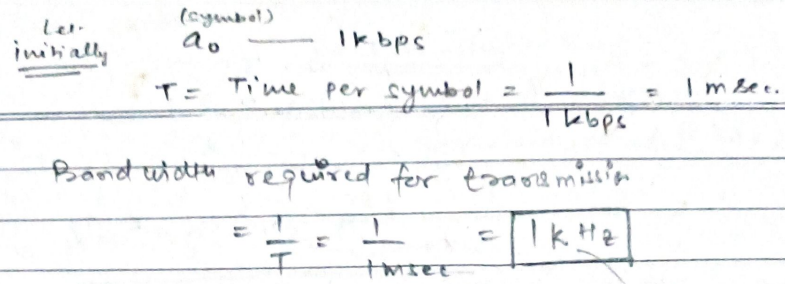 Let (symbol)
initially a₀ — 1kbps
T = Time per symbol = 1/1kbps = 1 msec.
Bandwidth required for transmission
= 1/T = 1/1msec = 1kHz